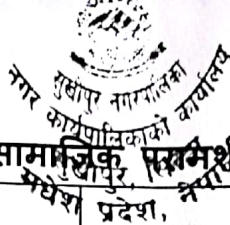 सुखीपुर नगरपालिका
नगर कार्यपालिकाको कार्यालय
सामाजिक परामर्श
सुखीपुर,
मधेश प्रदेश, नेपाल